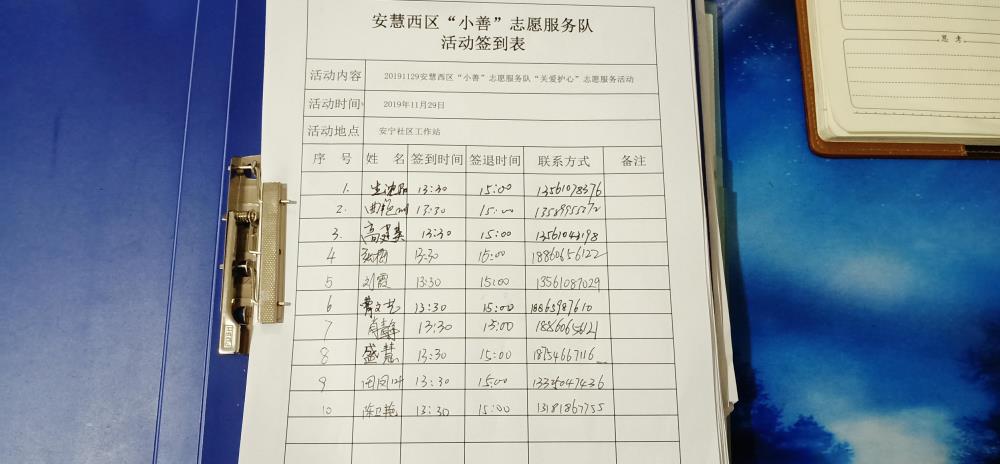 安慧西区“小善”志愿服务队
活动签到表
思考
活动内容 20191129安慧西区“小善”志愿服务队“关爱护心”志愿服务活动
活动时间 2019年11月29日
活动地点 安宁社区工作站
序 号 姓 名 签到时间 签退时间 联系方式 备注
1. 13:30 15:00 13561078376
2. 13:30 15:00
3. 13:30 15:00 13561043198
4 13:30 15:00 18860656122
5 刘霞 13:30 15:00 13561087029
6 曹文艺 13:30 15:00 18865987610
7 肖静 13:30 15:00
8 盛慧 13:30 15:00 18754667116
9 田凤叶 13:30 15:00 13325047436
10 陈卫艳 13:30 15:00 13181867755